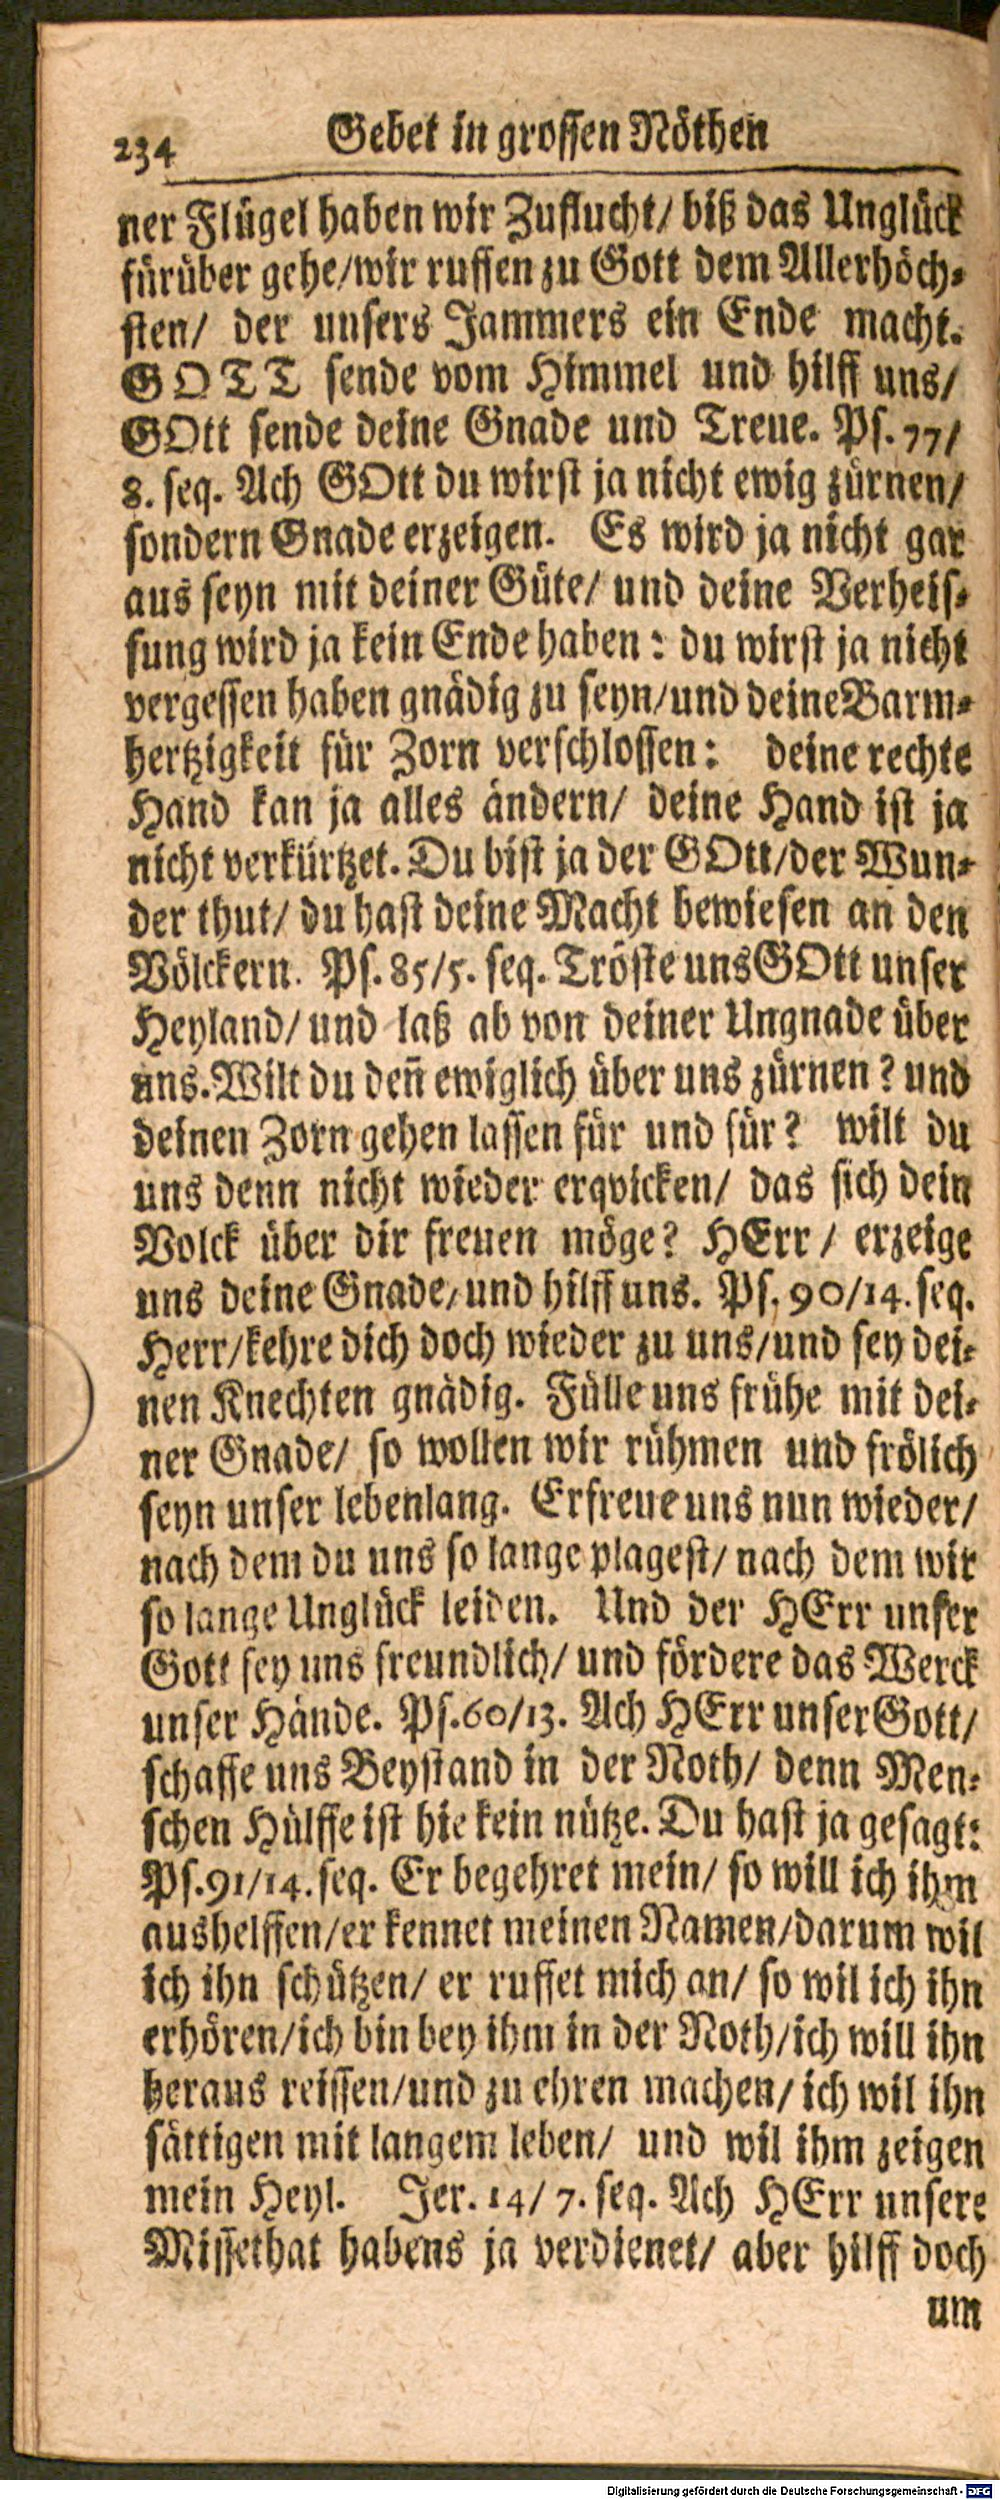 234 Gebet in grossen Nöthen
ner Flügel haben wir Zuflucht/ biß das Unglück
fürüber gehe/wir ruffen zu Gott dem Allerhöch-
sten/ der unsers Jammers ein Ende macht.
GOTT sende vom Himmel und hilff uns/
GOtt sende deine Gnade und Treue. Ps. 77/
8. seq. Ach GOtt du wirst ja nicht ewig zürnen/
sondern Gnade erzeigen. Es wird ja nicht gar
aus seyn mit deiner Güte/ und deine Verheis-
sung wird ja kein Ende haben: du wirst ja nicht
vergessen haben gnädig zu seyn/und deine Barm-
hertzigkeit für Zorn verschlossen: deine rechte
Hand kan ja alles ändern/ deine Hand ist ja
nicht verkürtzet. Du bist ja der GOtt/der Wun-
der thut/ du hast deine Macht bewiesen an den
Völckern. Ps. 85/5. seq. Tröste uns GOtt unser
Heyland/ und laß ab von deiner Ungnade über
uns. Wilt du deñ ewiglich über uns zürnen? und
deinen Zorn gehen lassen für und für? wilt du
uns denn nicht wieder erqvicken/ das sich dein
Volck über dir freuen möge? HErr/ erzeige
uns deine Gnade/und hilff uns. Ps. 90/14. seq.
Herr/kehre dich doch wieder zu uns/und sey dei-
nen Knechten gnädig. Fülle uns frühe mit dei-
ner Gnade/ so wollen wir rühmen und frölich
seyn unser lebenlang. Erfreue uns nun wieder/
nach dem du uns so lange plagest/ nach dem wir
so lange Unglück leiden. Und der HErr unser
Gott sey uns freundlich/ und fördere das Werck
unser Hände. Ps. 60/13. Ach HErr unser Gott/
schaffe uns Beystand in der Noth/ denn Men-
schen Hülffe ist hie kein nütze. Du hast ja gesagt:
Ps. 91/14. seq. Er begehret mein/ so will ich ihm
aushelffen/er kennet meinen Namen/darum wil
ich ihn schützen/ er ruffet mich an/ so wil ich ihn
erhören/ich bin bey ihm in der Noth/ich will ihn
heraus reissen/und zu ehren machen/ ich wil ihn
sättigen mit langem leben/ und wil ihm zeigen
mein Heyl. Jer. 14/ 7. seq. Ach HErr unsere
Missethat habens ja verdienet/ aber hilff doch
um
Digitalisierung gefördert durch die Deutsche Forschungsgemeinschaft - DFG